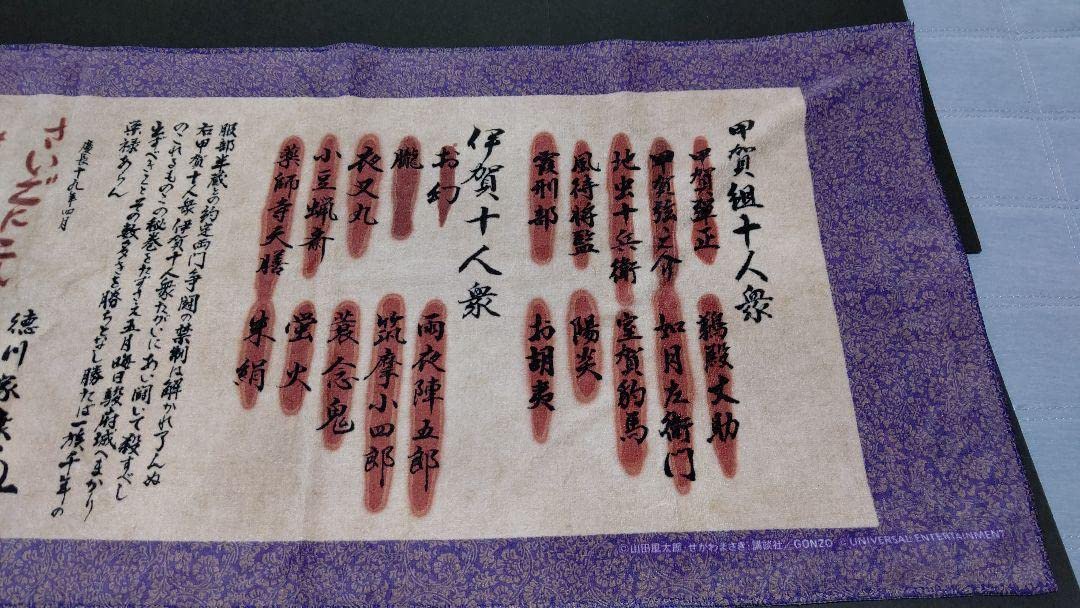 甲賀組十人衆
甲賀弾正
甲賀弦之介
地虫十兵衛
風待将監
霞刑部
鵜殿丈助
如月左衛門
室賀豹馬
陽炎
お胡夷
伊賀十人衆
お幻
朧
夜叉丸
小豆蝋斎
薬師寺天膳
雨夜陣五郎
筑摩小四郎
蓑念鬼
蛍火
朱絹
服部半蔵との約定両門争闘の禁制は解かれ了んぬ
右甲賀十人衆伊賀十人衆たがいにあい闘いて殺すべし
のこれるものこの秘巻をたずさえ五月晦日駿府城へまかり
出ずべきことその数多きを勝ちとなし勝たば一族千年の
栄禄あらん
慶長十九年四月
徳川家
さいごに
©山田風太郎・せがわまさき・講談社/GONZO UNIVERSAL ENTERTAINMENT